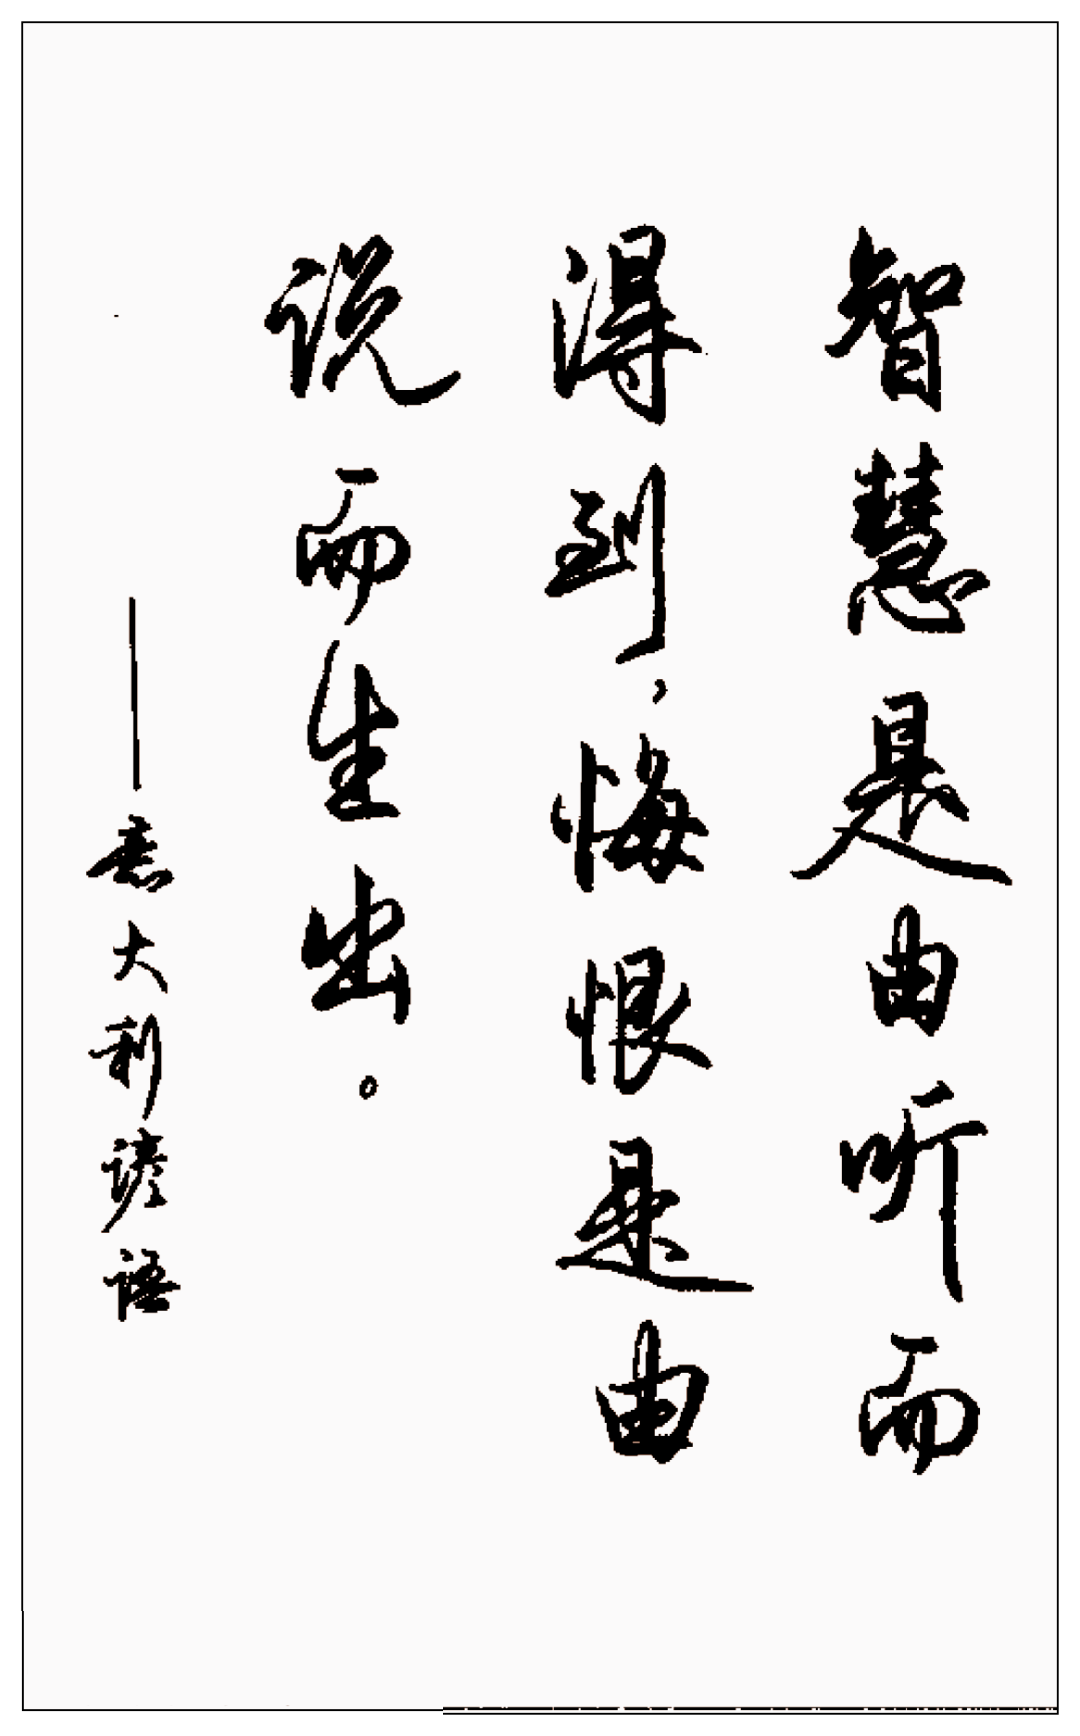 智慧是由听而
得到，悔恨是由
说而生出。
——意大利谚语